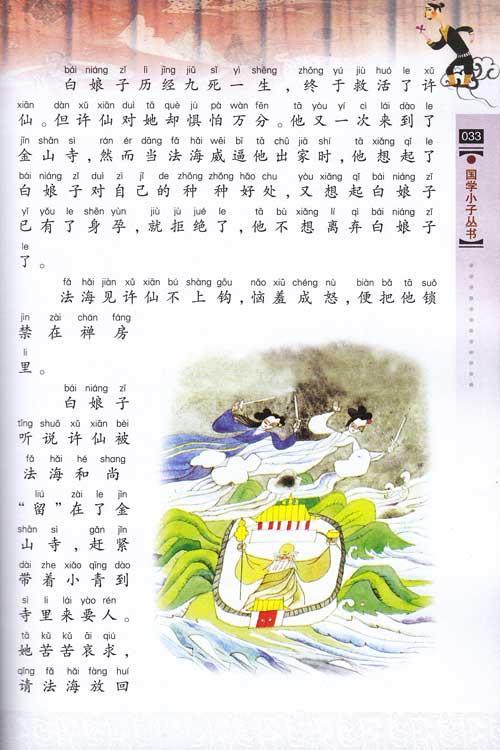 bái niáng zǐ lì jīng jiǔ sǐ yì shēng zhōng yú jiù huó le xǔ
白娘子历经九死一生，终于救活了许
xiān dàn xǔ xiān duì tā què jù pà wàn fēn tā yòu yí cì lái dào le
仙。但许仙对她却惧怕万分。他又一次来到了
jīn shān sì rán ér dāng fǎ hǎi wēi bī tā chū jiā shí tā xiǎng qǐ le
金山寺，然而当法海威逼他出家时，他想起了
bái niáng zǐ duì zì jǐ de zhǒng zhǒng hǎo chu yòu xiǎng qǐ bái niáng zǐ
白娘子对自己的种种好处，又想起白娘子
yǐ yǒu le shēn yùn jiù jù jué le tā bù xiǎng lí qì bái niáng zǐ
已有了身孕，就拒绝了，他不想离弃白娘子
le
了。
fǎ hǎi jiàn xǔ xiān bú shàng gōu nǎo xiū chéng nù biàn bǎ tā suǒ
法海见许仙不上钩，恼羞成怒，便把他锁
jìn zài chán fáng
禁在禅房
lǐ
里。
bái niáng zǐ
白娘子
tīng shuō xǔ xiān bèi
听说许仙被
fǎ hǎi hé shang
法海和尚
liú zài le jīn
“留”在了金
shān sì gǎn jǐn
山寺，赶紧
dài zhe xiǎo qīng dào
带着小青到
sì lǐ lái yào rén
寺里来要人。
tā kǔ kǔ āi qiú
她苦苦哀求，
qǐng fǎ hǎi fàng huí
请法海放回
033
【国学小子丛书】